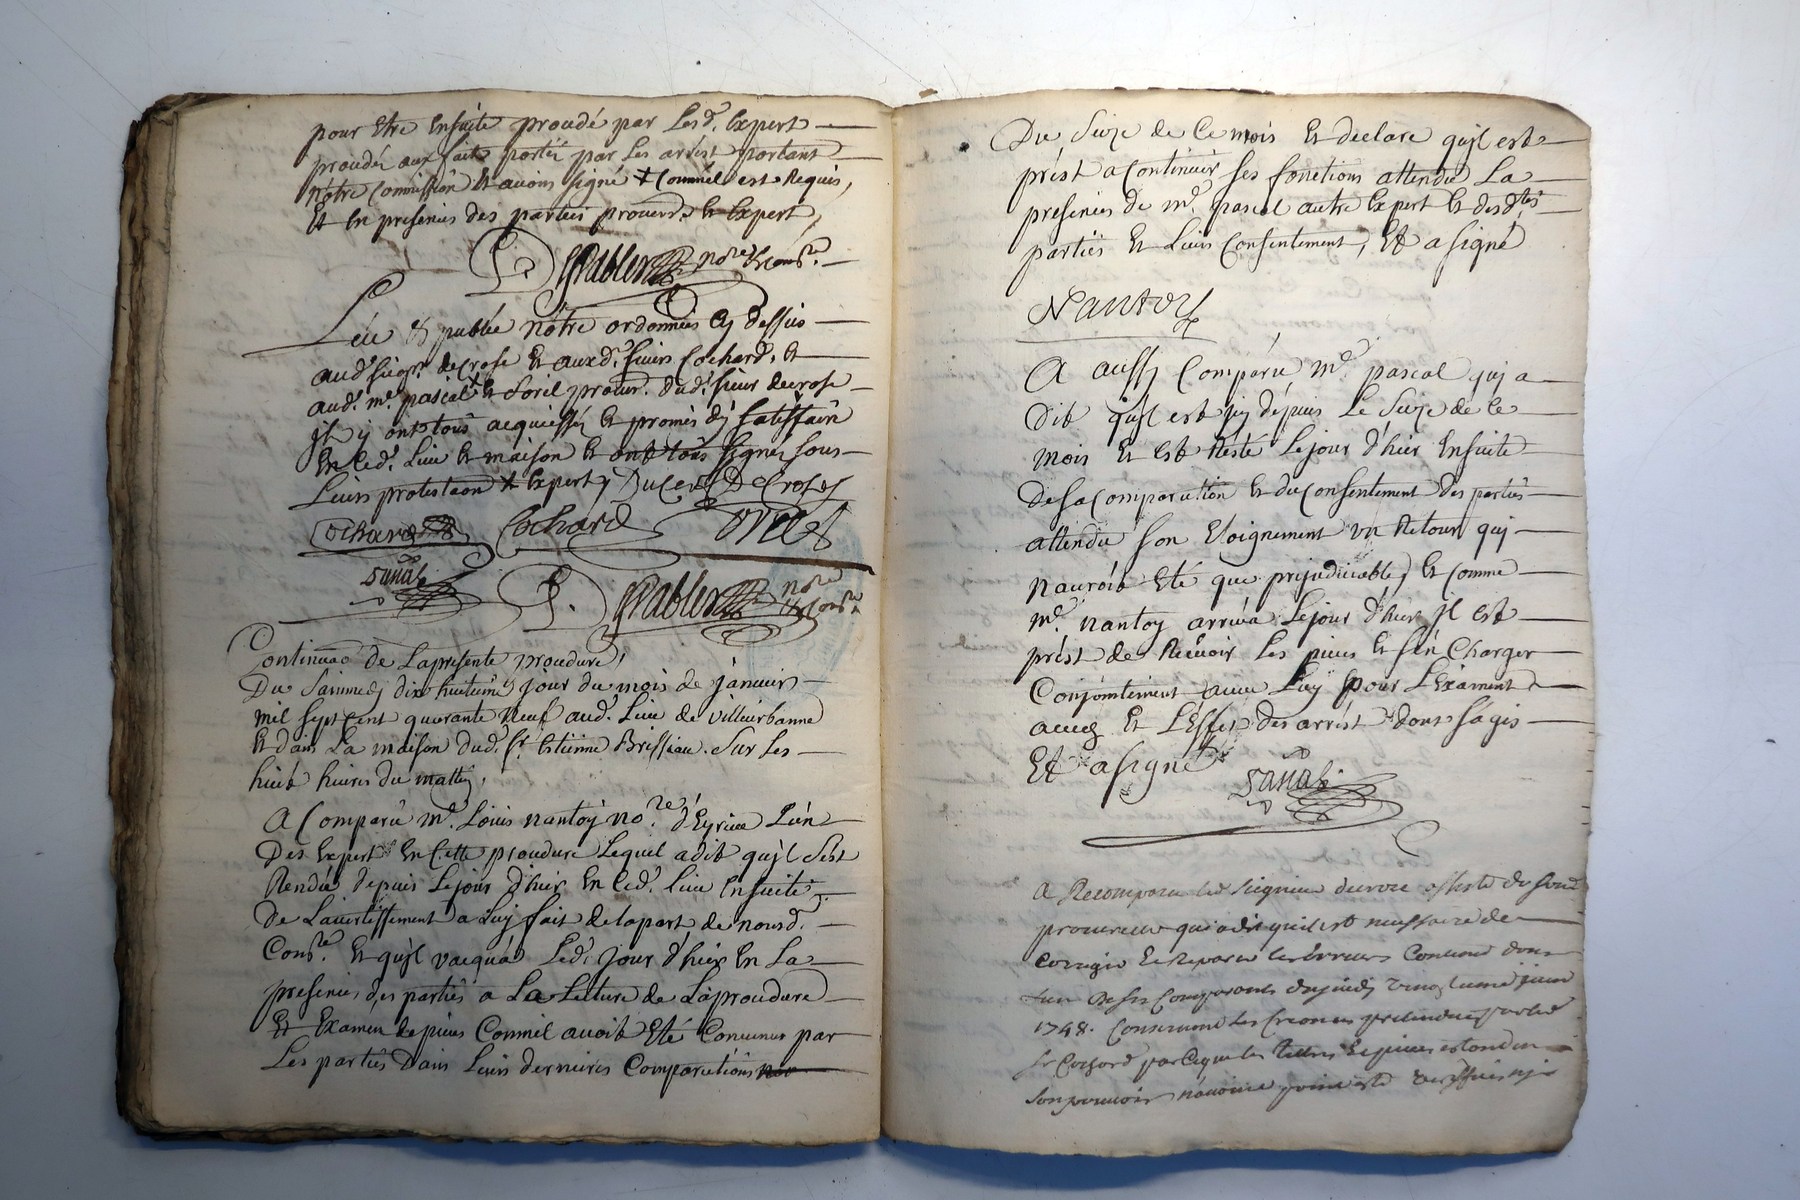 pour Etre Ensuite procedé par Lesd. Expert
proceder aux faits portés par Les arrest portant
nôtre Commission Et avons signé + Comme il est Requis,
Et En presences des parties procureurs Et Expert,
Léue & publiée nôtre ordonnées Cy dessus
aud. seigr. decrose Et auxd. sieurs Cochard, Et
aud. me. pascal + Et Sorel procur. dud. sieur decrose
jls y ont tous acquiessés Et promis dy satisfaire
En led. Lieu Et maison Et ont tous signés sous
Leurs protestaon + Expert, DeCroses
Cochard Cochard
Continuao de Lapresente procedure,
Du Sammedj dix huitieme jour du mois de janvier
mil sept Cent quarante Neuf aud. Lieu de villeurbanne
Et dans La maison dud. sr. Estienne Brissiau. Sur Les
huit heures du mattin,
A Comparû me. Loüis nantoy nore. d'Eyrieu L'un
Des Expert En Cette procedure Lequel adit qu'jl s'est
Rendu depuis Lejour d'hier En led. Lieu Ensuite
De L'avertissement a Luy fait de la part de nousd.
Conre. Et qu'jl vacqua Led. jour d'hier En La
presences des partiês a La Lecture de La procedure
Et Examen de pieces Comme il avoit Eté Convenus par
Les partiês Dans Leurs dernieres Comparutions
Du Seize de Ce mois Et declare qu'jl est
prést a Continuer ses fonctions attendu La
presences de me. pascal autre Expert Et desdtes
partiês Et Leurs Consentement, Et a signé
Nantoy
A aussy Comparu me. pascal qui a
Dit qu'jl est jcy dépuis Le Seize de Ce
mois Et Est Resté Lejour d'hier Ensuite
De sa Comparution Et du Consentement des parties
attendu son Eloignement un Retour qui
n'auroit Eté que prejudiciable, Et Comme
me. nantoy arriva Lejour d'hier jl est
prést de Recevoir Les pieces Et s'en Charger
Conjointement avec Luy pour L'Exament
avec Et L'Effet des arrést dont s'agis
Et a signé
A Recomparu led Seigneur decroze assisté de son
procureur qui a dit qu'il est necessaire de
Corriger Et Reparer les Erreurs Contenues dans
l'un De ses Comparants du jeudy
1748. Concernant les Creances pretendues par led
Sr Cochard parce que les Titres Et pieces estand en
son pouvoir n'avoient point esté